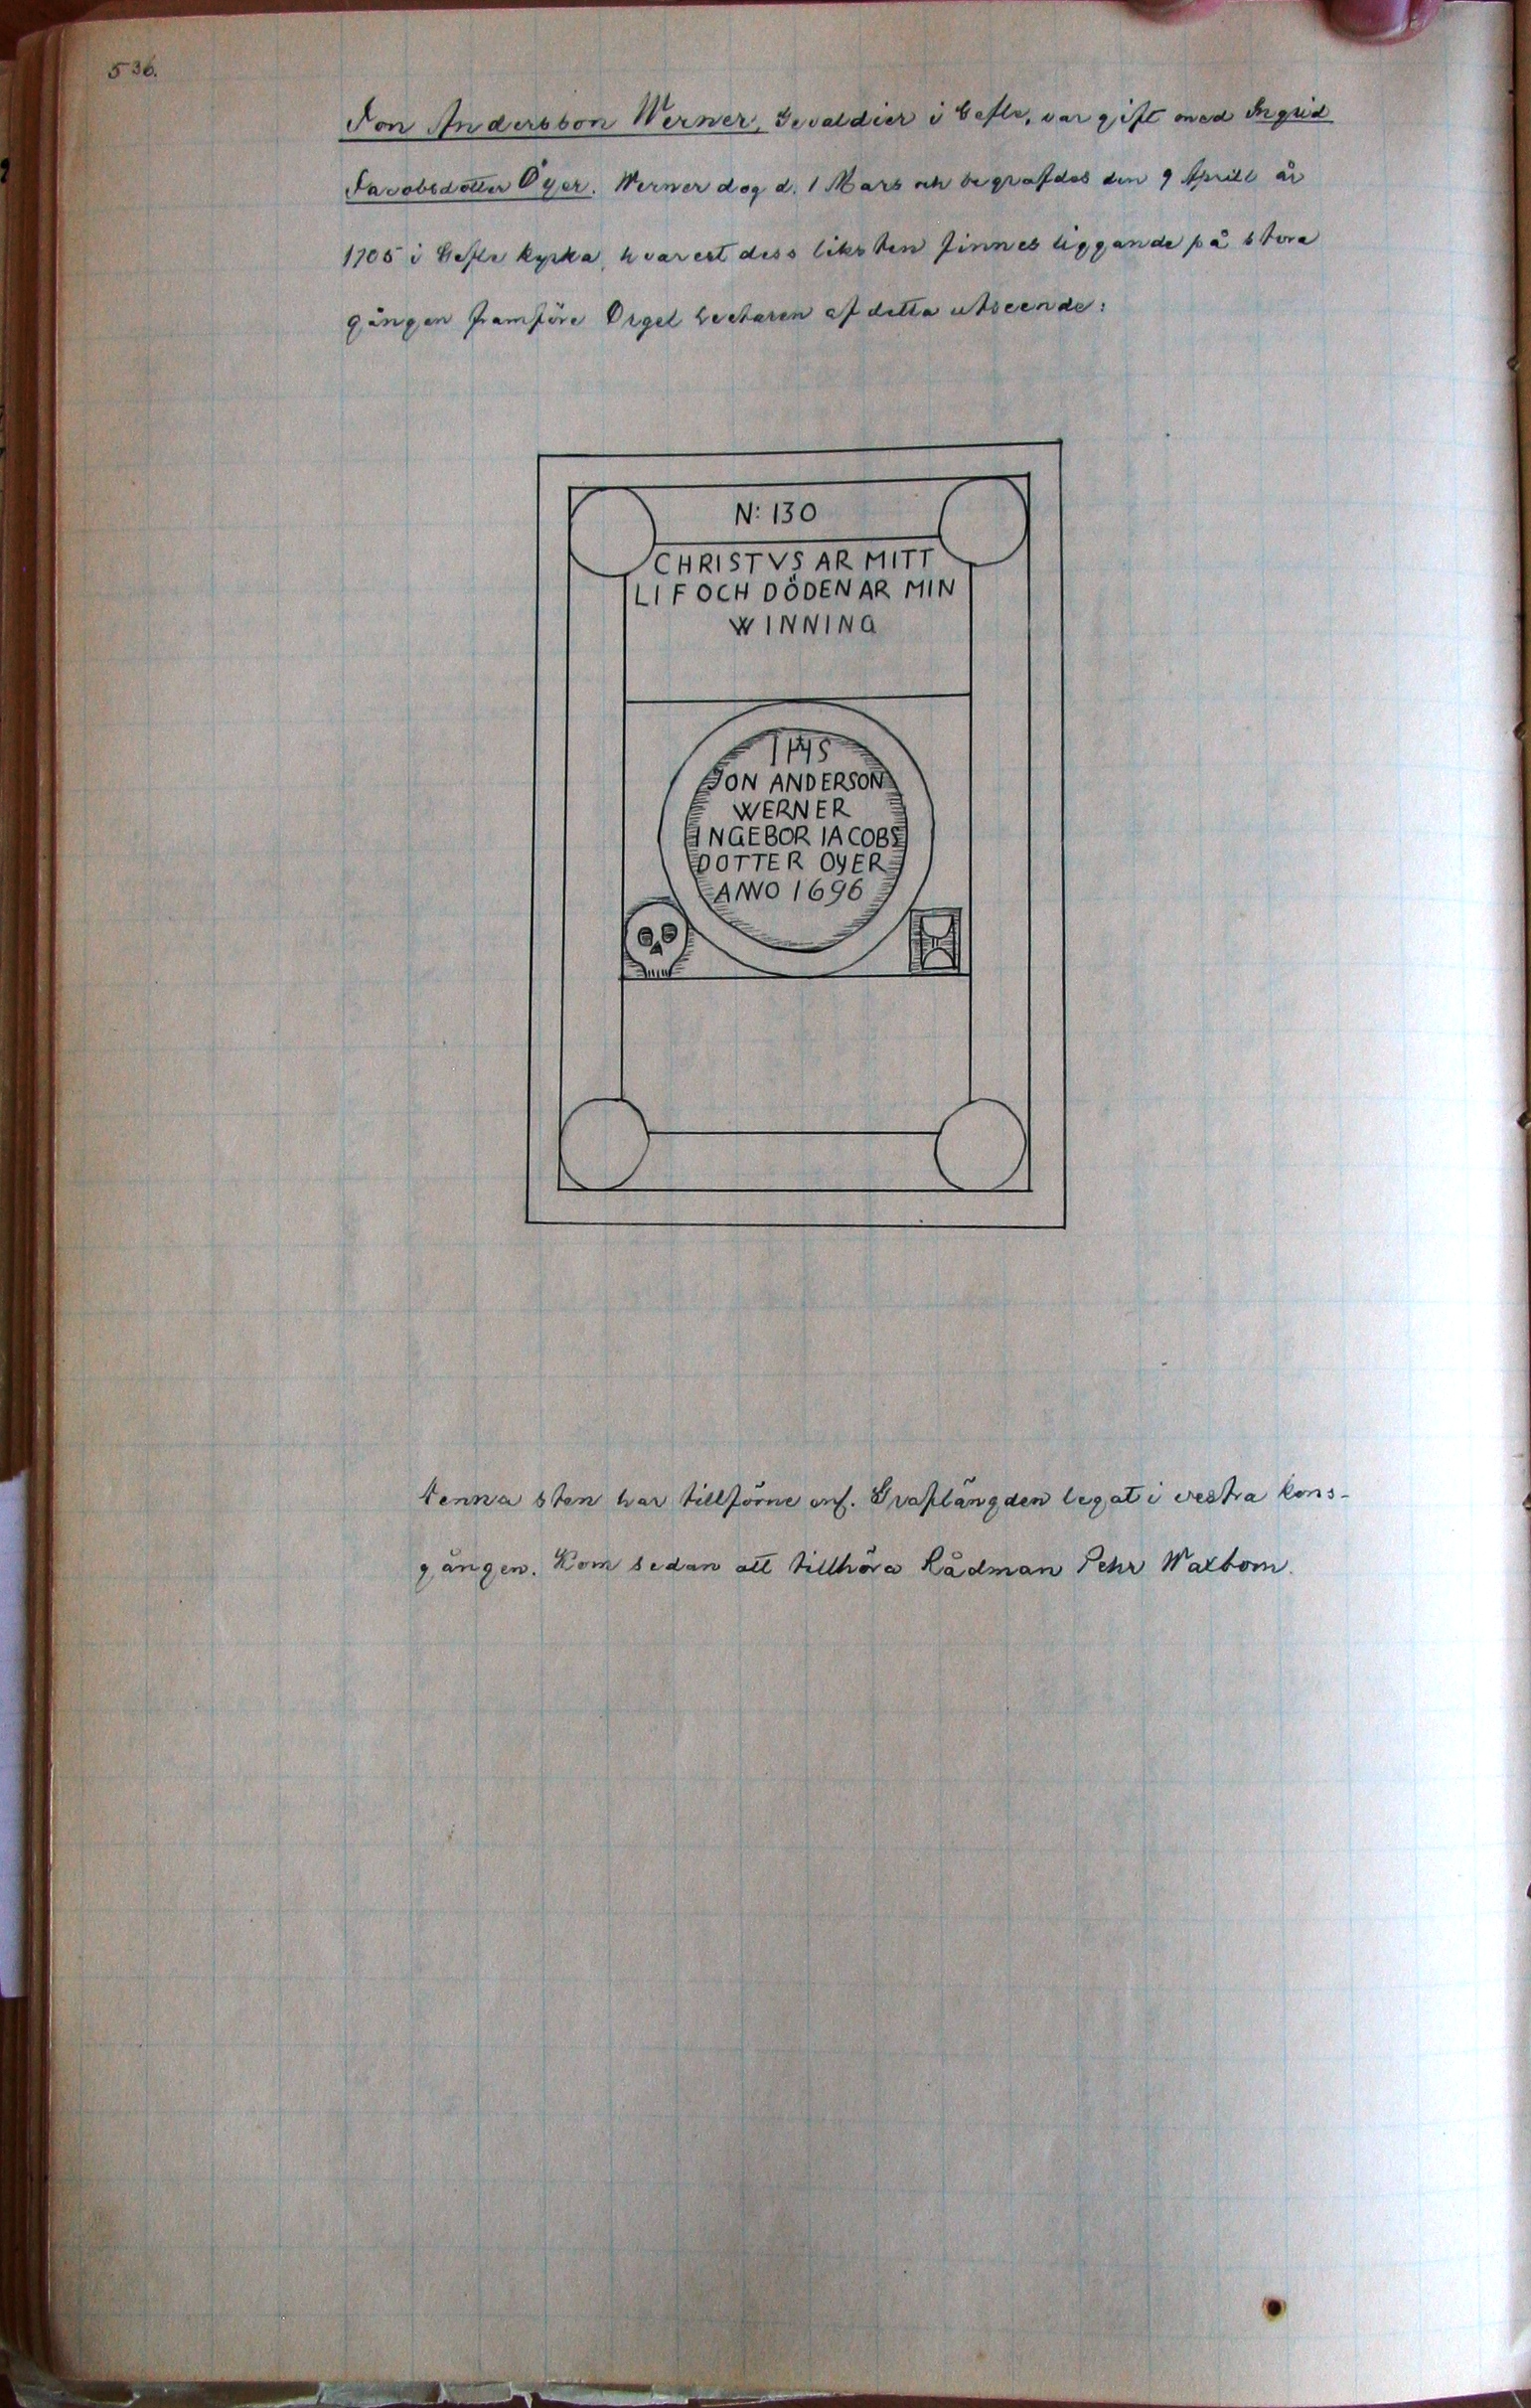 536.
Jon Andersson Werner, Gevaldier i Gefle, var gift med Ingrid
Jacobsdotter Öyer. Werner dog d. 1 Mars och begrafdes den 9 Aprill år
1705 i Gefle kyrka, hvarest dess liksten finnes liggande på stora
gången framföre Orgel Lectaren af detta utseende:
N: 130
CHRISTVS AR MITT
LIF OCH DÖDEN AR MIN
WINNING
IHS
JON ANDERSON
WERNER
INGEBOR IACOBS
DOTTER OYER
ANNO 1696
denna sten har tillförne enl. Graflängden legat i vestra kors-
gången. Kom sedan att tillhöra Rådman Pehr Waxbom.